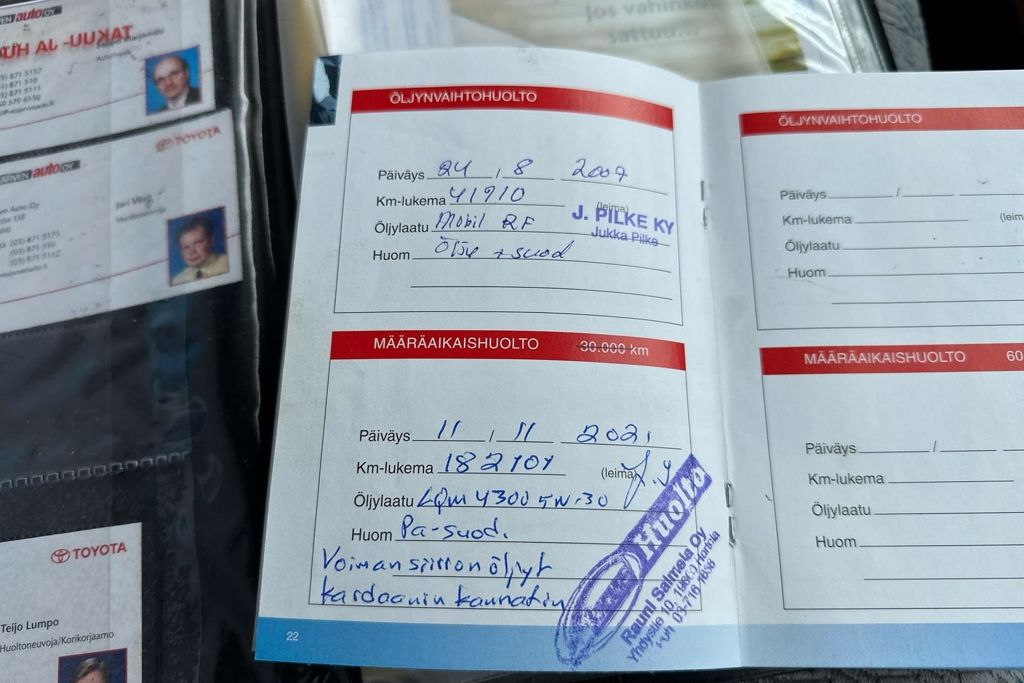 auto OY
TAKUU- JA
Automyyjä
(03) 871 5157
TOYOTA
auto OY
Auto Oy
Jari
Huoltoneuvoja
(03) 871 5173
TOYOTA
Teijo Lumpo
Huoltoneuvoja/Korikorjaamo
Jos vahinko
sattuu...
ÖLJYNVAIHTOHUOLTO
Päiväys 24 / 8 2007
Km-lukema 41910 (leima)
Öljylaatu Mobil RF
Huom Öljy + suod
J. PILKE KY
Jukka Pilke
MÄÄRÄAIKAISHUOLTO 30.000 km
Päiväys 11 / 11 2021
Km-lukema 182101 (leima)
Öljylaatu LQM 4300 5W-30
Huom Pa-suod.
Voimansiirron öljyt
kardaanin kannatin
Huolto
Rauni Salmela Oy
22
ÖLJYNVAIHTOHUOLTO
Päiväys /
Km-lukema (leim
Öljylaatu
Huom
MÄÄRÄAIKAISHUOLTO 60
Päiväys /
Km-lukema
Öljylaatu
Huom